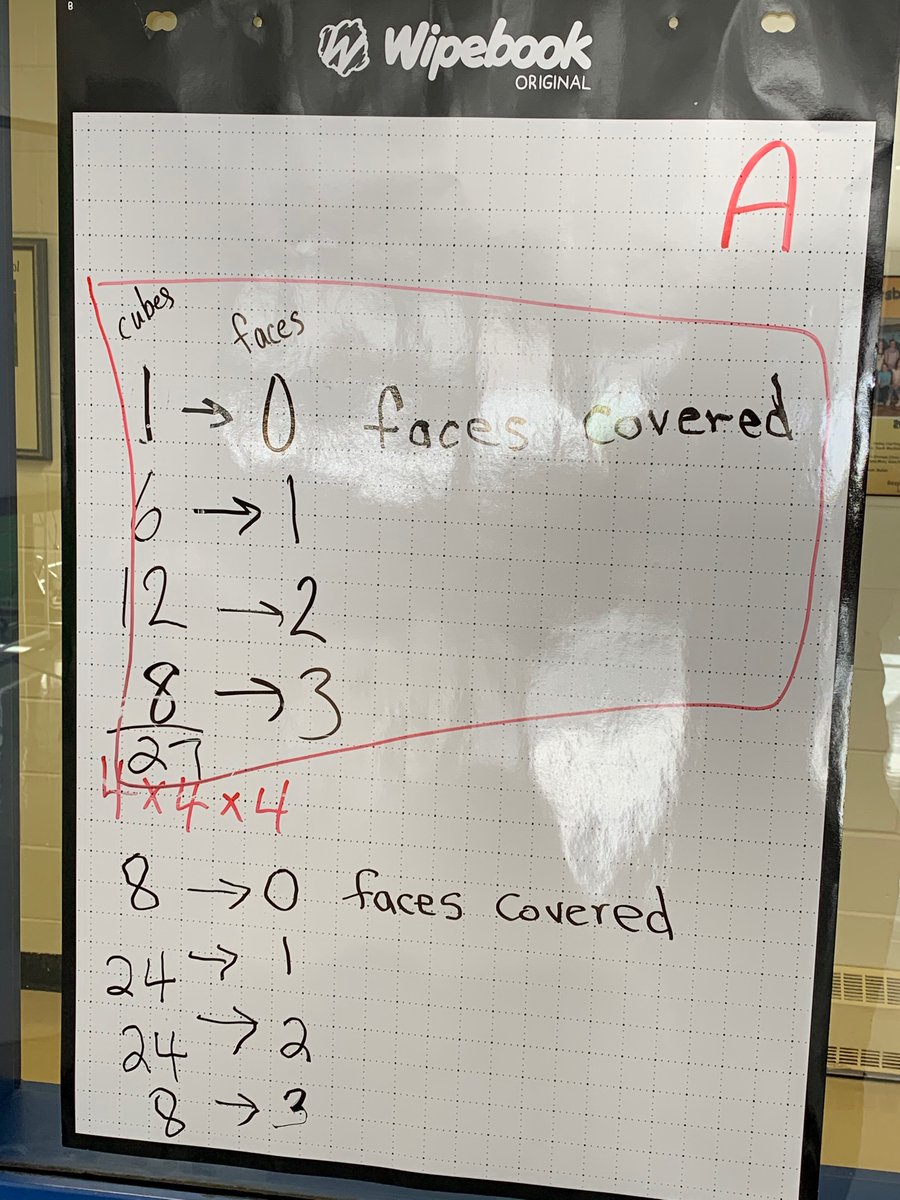 B
Wipebook
ORIGINAL
A
cubes faces
1 → 0 faces covered
6 → 1
12 → 2
8 → 3
27
4 x 4 x 4
8 → 0 faces covered
24 → 1
24 → 2
8 → 3